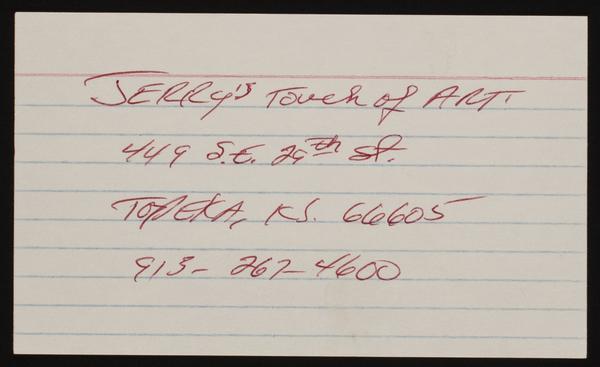 JERRy's Touch of ART
449 S.E. 29th St.
TOPEKA, KS. 66605
913-267-4600